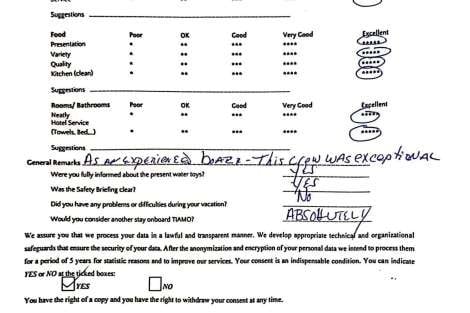 Suggestions
Food Poor OK Good Very Good Excellent
Presentation * ** *** **** *****
Variety * ** *** **** *****
Quality * ** *** **** *****
Kitchen (clean) * ** *** **** *****
Suggestions
Rooms/ Bathrooms Poor OK Good Very Good Excellent
Neatly * ** *** **** *****
Hotel Service
(Towels, Bed...) * ** *** **** *****
Suggestions
General Remarks AS AN EXPERIENCED BOATER - THIS CREW WAS EXCEPTIONAL
Were you fully informed about the present water toys? YES
Was the Safety Briefing clear? YES
Did you have any problems or difficulties during your vacation? NO
Would you consider another stay onboard TIAMO? ABSOLUTELY
We assure you that we process your data in a lawful and transparent manner. We develop appropriate technical and organizational
safeguards that ensure the security of your data. After the anonymization and encryption of your personal data we intend to process them
for a period of 5 years for statistic reasons and to improve our services. Your consent is an indispensable condition. You can indicate
YES or NO at the ticked boxes:
YES NO
You have the right of a copy and you have the right to withdraw your consent at any time.